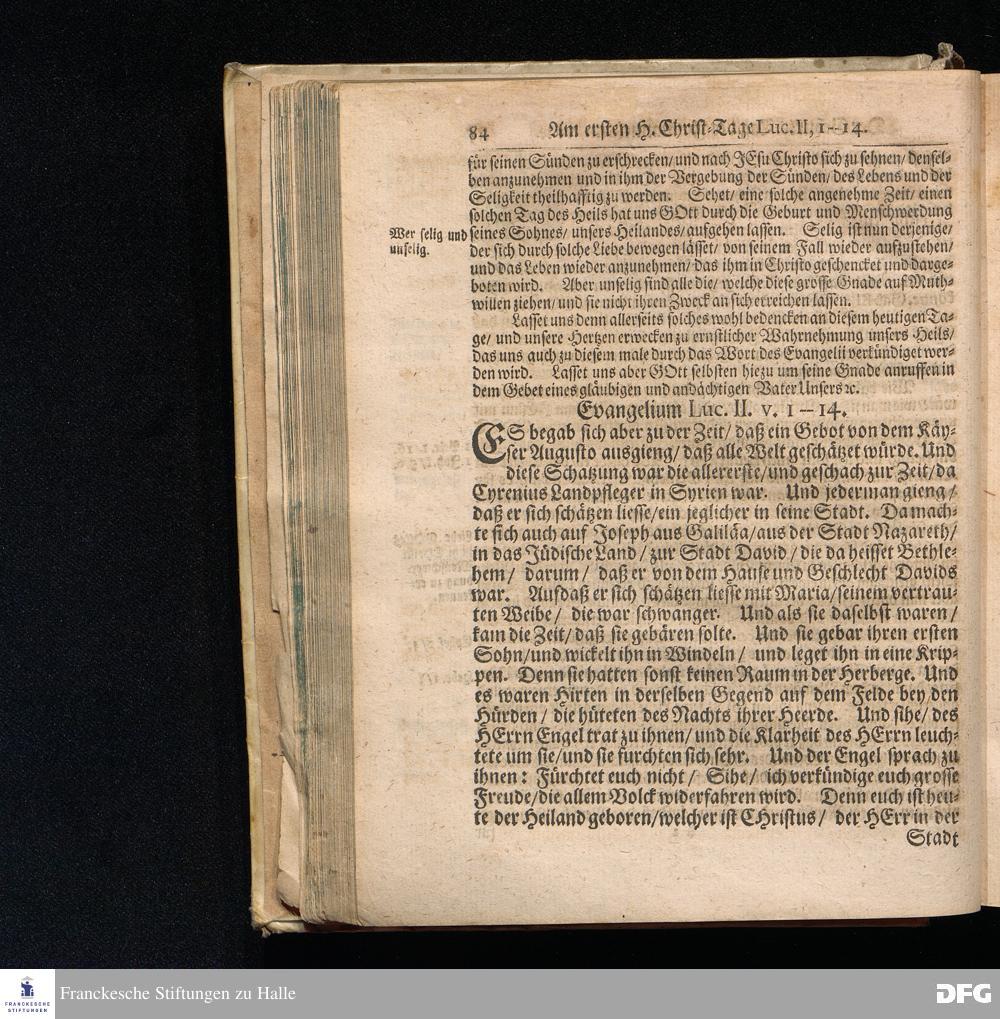 84 Am ersten H. Christ-Tage Luc. II, 1--14.
für seinen Sünden zu erschrecken/ und nach JEsu Christo sich zu sehnen/ densel-
ben anzunehmen und in ihm der Vergebung der Sünden/ des Lebens und der
Seligkeit theilhafftig zu werden. Sehet/ eine solche angenehme Zeit/ einen
solchen Tag des Heils hat uns GOtt durch die Geburt und Menschwerdung
seines Sohnes/ unsers Heilandes/ aufgehen lassen. Selig ist nun derjenige/
Wer selig und
unselig.
der sich durch solche Liebe bewegen lässet/ von seinem Fall wieder aufzustehen/
und das Leben wieder anzunehmen/ das ihm in Christo geschencket und darge-
boten wird. Aber unselig sind alle die/ welche diese grosse Gnade auf Muth-
willen ziehen/ und sie nicht ihren Zweck an sich erreichen lassen.
Lasset uns denn allerseits solches wohl bedencken an diesem heutigen Ta-
ge/ und unsere Hertzen erwecken zu ernstlicher Wahrnehmung unsers Heils/
das uns auch zu diesem male durch das Wort des Evangelii verkündiget wer-
den wird. Lasset uns aber GOtt selbsten hiezu um seine Gnade anruffen in
dem Gebet eines gläubigen und andächtigen Vater Unsers ꝛc.
Evangelium Luc. II. v. 1 -- 14.
ES begab sich aber zu der Zeit/ daß ein Gebot von dem Käy-
ser Augusto ausgieng/ daß alle Welt geschätzet würde. Und
diese Schatzung war die allererste/ und geschach zur Zeit/ da
Cyrenius Landpfleger in Syrien war. Und jederman gieng/
daß er sich schätzen liesse/ ein jeglicher in seine Stadt. Da mach-
te sich auch auf Joseph aus Galiläa/ aus der Stadt Nazareth/
in das Jüdische Land/ zur Stadt David/ die da heisset Bethle-
hem/ darum/ daß er von dem Hause und Geschlecht Davids
war. Auf daß er sich schätzen liesse mit Maria/ seinem vertrau-
ten Weibe/ die war schwanger. Und als sie daselbst waren/
kam die Zeit/ daß sie gebären solte. Und sie gebar ihren ersten
Sohn/ und wickelt ihn in Windeln/ und leget ihn in eine Krip-
pen. Denn sie hatten sonst keinen Raum in der Herberge. Und
es waren Hirten in derselben Gegend auf dem Felde bey den
Hürden/ die hüteten des Nachts ihrer Heerde. Und sihe/ des
HErrn Engel trat zu ihnen/ und die Klarheit des HErrn leuch-
tete um sie/ und sie furchten sich sehr. Und der Engel sprach zu
ihnen: Fürchtet euch nicht/ Sihe/ ich verkündige euch grosse
Freude/ die allem Volck widerfahren wird. Denn euch ist heu-
te der Heiland geboren/ welcher ist CHristus/ der HErr in der
Stadt
FRANCKESCHE
STIFTUNGEN
Franckesche Stiftungen zu Halle
DFG